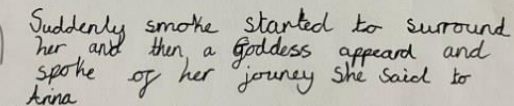 Suddenly smoke started to surround
her and then a Goddess appeard and
spoke of her jouney She Said to
Anna